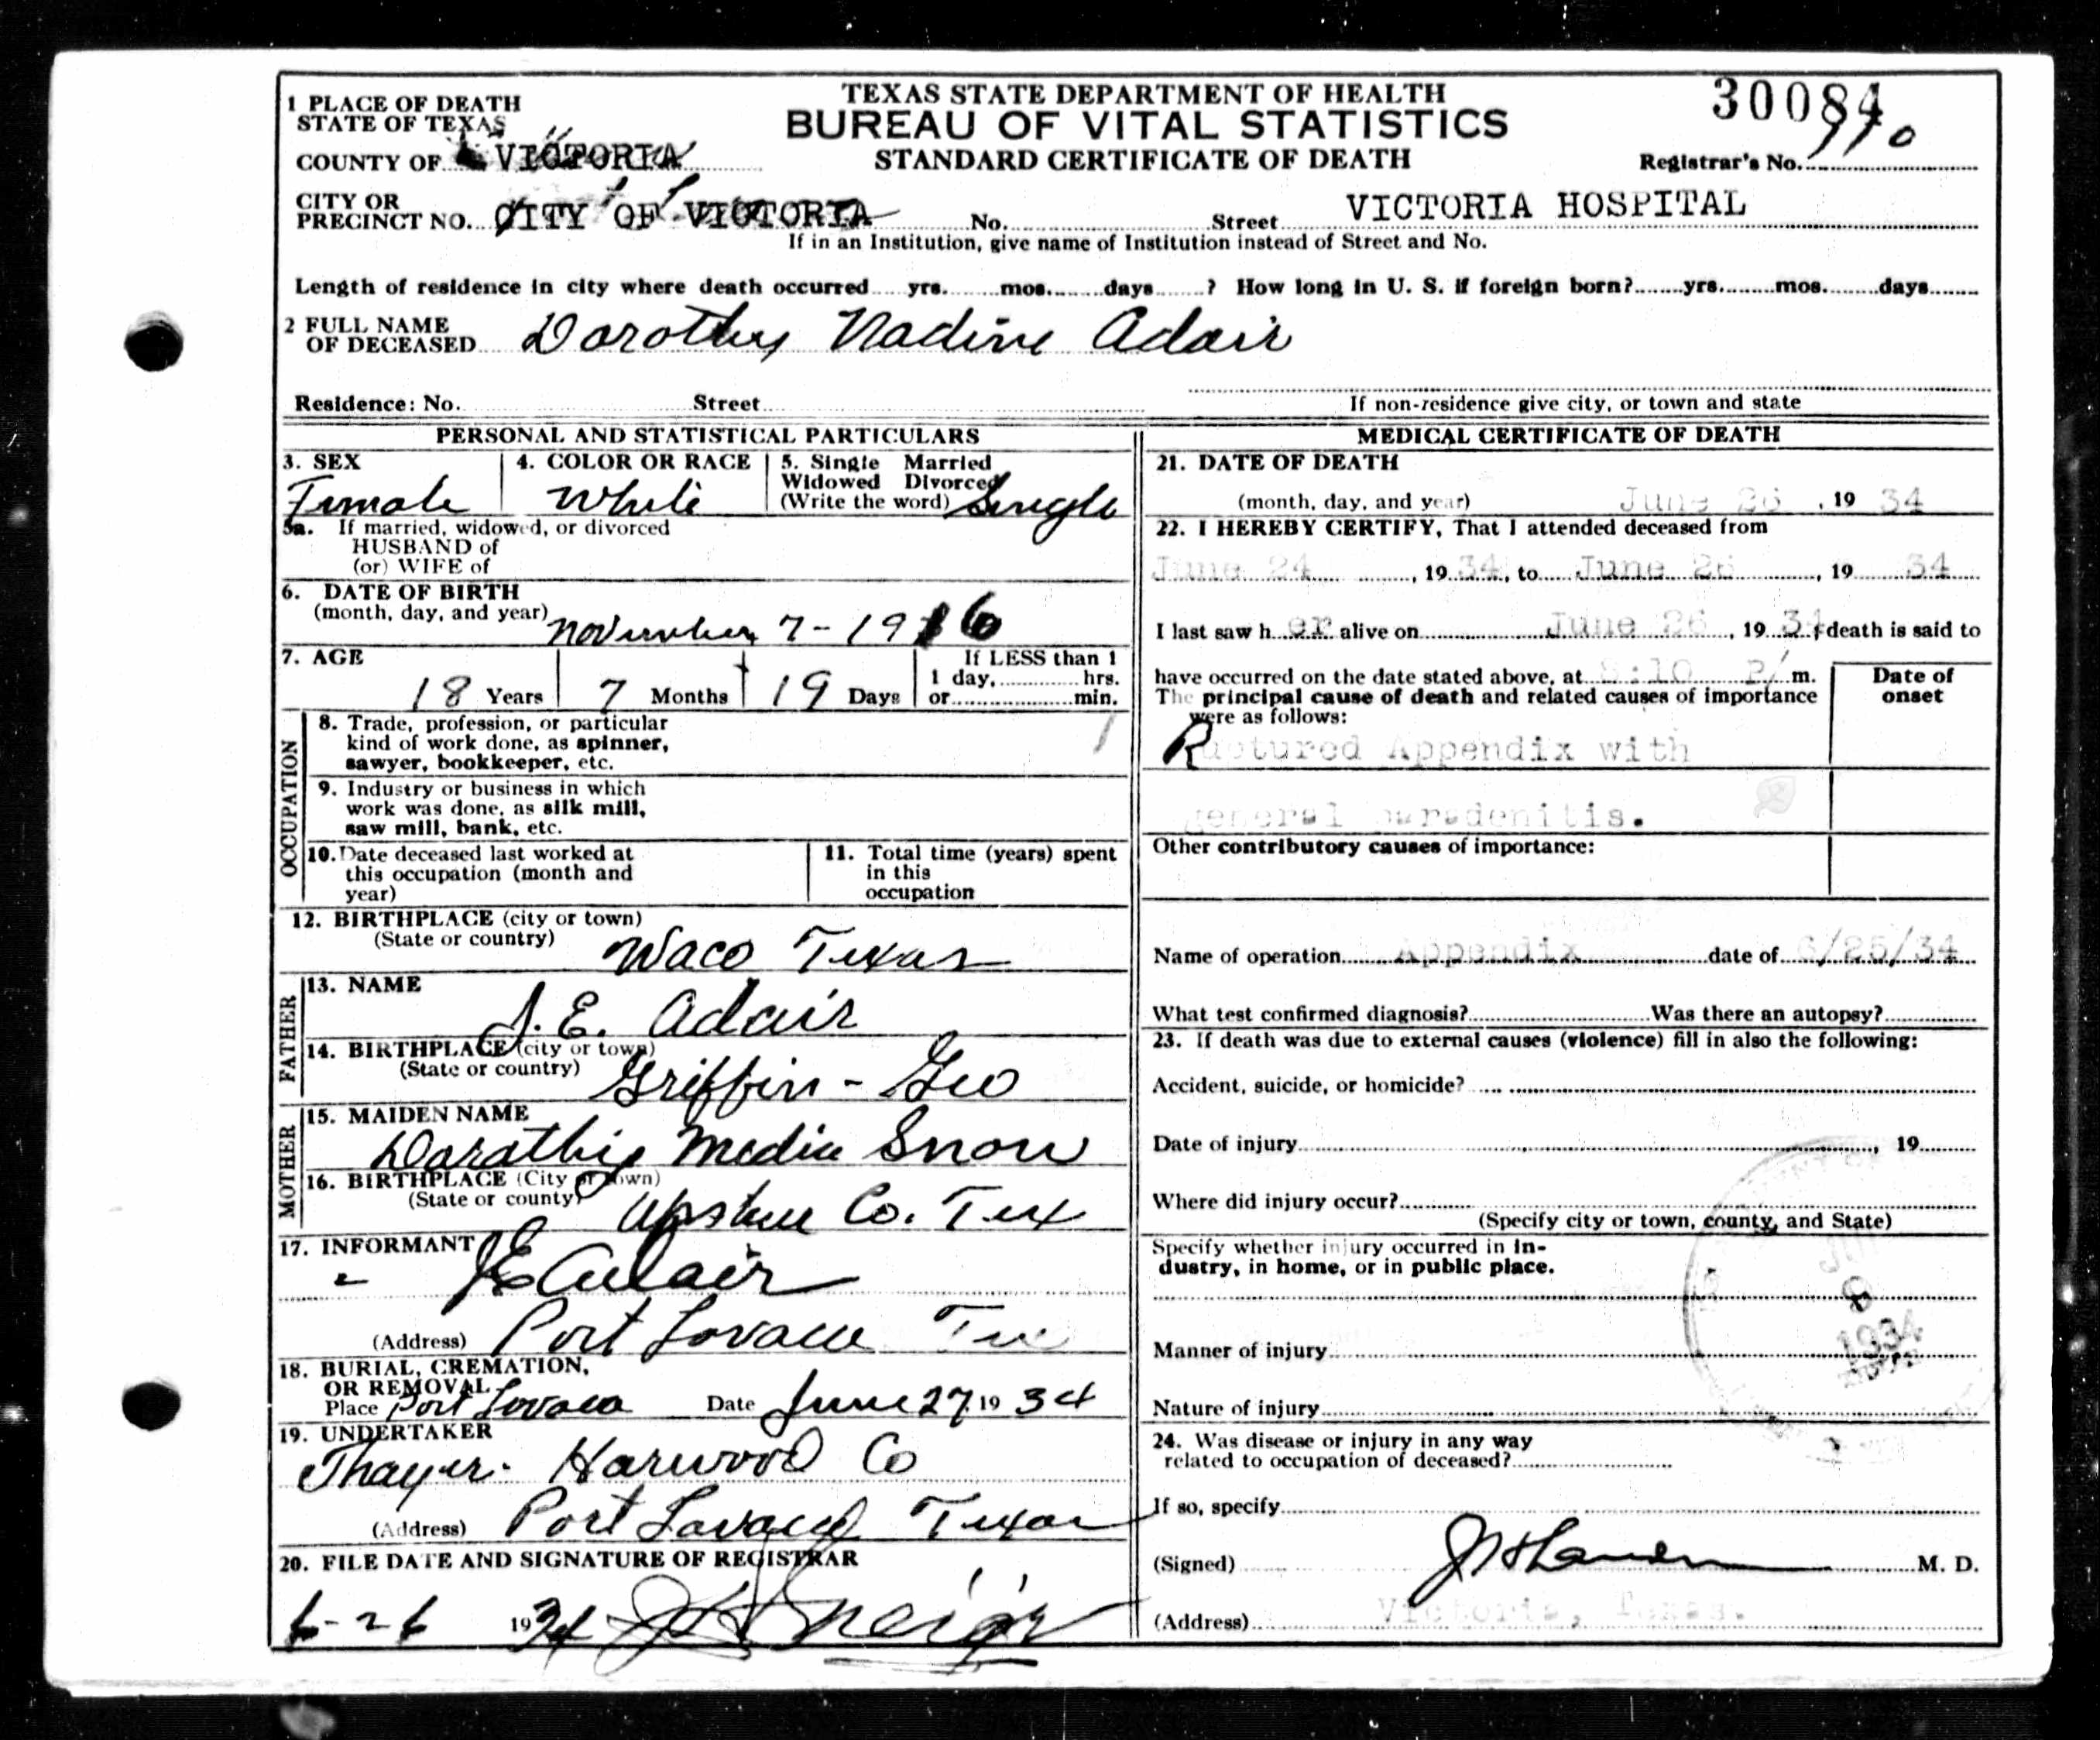 TEXAS STATE DEPARTMENT OF HEALTH
BUREAU OF VITAL STATISTICS
STANDARD CERTIFICATE OF DEATH
30084
Registrar's No. 110
1 PLACE OF DEATH
STATE OF TEXAS
COUNTY OF VICTORIA
CITY OR
PRECINCT NO. CITY OF VICTORIA No. Street VICTORIA HOSPITAL
If in an Institution, give name of Institution instead of Street and No.
Length of residence in city where death occurred yrs. mos. days ? How long in U. S. if foreign born? yrs. mos. days
2 FULL NAME
OF DECEASED Dorothy Nadine Adair
Residence: No. Street
If non-residence give city, or town and state
PERSONAL AND STATISTICAL PARTICULARS
3. SEX
Female
4. COLOR OR RACE
White
5. Single Married
Widowed Divorced
(Write the word) Single
5a. If married, widowed, or divorced
HUSBAND of
(or) WIFE of
6. DATE OF BIRTH
(month, day, and year) November 7-1916
7. AGE
18 Years 7 Months 19 Days
If LESS than 1
1 day, hrs.
or min.
OCCUPATION
8. Trade, profession, or particular
kind of work done, as spinner,
sawyer, bookkeeper, etc.
9. Industry or business in which
work was done, as silk mill,
saw mill, bank, etc.
10. Date deceased last worked at
this occupation (month and
year)
11. Total time (years) spent
in this
occupation
12. BIRTHPLACE (city or town)
(State or country) Waco Texas
FATHER
13. NAME
J. E. Adair
14. BIRTHPLACE (city or town)
(State or country) Griffin - Geo
MOTHER
15. MAIDEN NAME
Dorathy Media Snow
16. BIRTHPLACE (City or town)
(State or county) Upshur Co. Tex
17. INFORMANT
J E Adair
(Address) Port Lavaca Tex
18. BURIAL, CREMATION,
OR REMOVAL
Place Port Lavaca Date June 27 19 34
19. UNDERTAKER
Thayer- Harwood Co
(Address) Port Lavaca Texas
20. FILE DATE AND SIGNATURE OF REGISTRAR
6-26 1934
MEDICAL CERTIFICATE OF DEATH
21. DATE OF DEATH
(month, day, and year) June 26 , 19 34
22. I HEREBY CERTIFY, That I attended deceased from
June 24 , 19 34, to June 26 , 19 34
I last saw h er alive on June 26 , 19 34, death is said to
have occurred on the date stated above, at :10 P/ m.
The principal cause of death and related causes of importance
were as follows:
Date of
onset
Ructured Appendix with
general
Other contributory causes of importance:
Name of operation Appendix date of 6/25/34
What test confirmed diagnosis? Was there an autopsy?
23. If death was due to external causes (violence) fill in also the following:
Accident, suicide, or homicide?
Date of injury , 19
Where did injury occur?
(Specify city or town, county, and State)
Specify whether injury occurred in in-
dustry, in home, or in public place.
Manner of injury
Nature of injury
1934
24. Was disease or injury in any way
related to occupation of deceased?
If so, specify
(Signed) M. D.
(Address) Victoria, Texas.